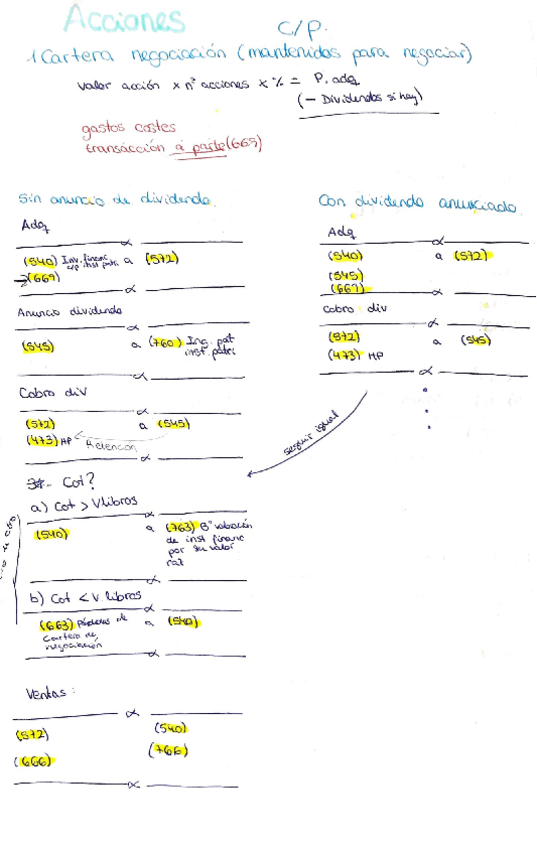 Acciones C/P.
1 Cartera negociación (mantenidas para negociar)
valor acción x nº acciones x % = P. adq
(- Dividendos si hay)
gastos costes
transacción a parte (669)
Sin anuncio de dividendo
Adq
(540) Inv. financ c/p inst patri a (572)
→(669)
Anuncio dividendo
(545) a (760) Ing. pat inst. patri
Cobro div
(572) a (545)
(473) HP Retención
Cot?
a) Cot > V libros
(540) a (763) Bº valoración
de inst financ
por su valor
b) Cot < V. libros
(663) pérdidas de a (540)
Cartera de
negociación
Ventas:
(572) (540)
(666) (766)
Con dividendo anunciado
Adq
(540) a (572)
(545)
(669)
Cobro div
(572) a (545)
(473) HP
seguir igual